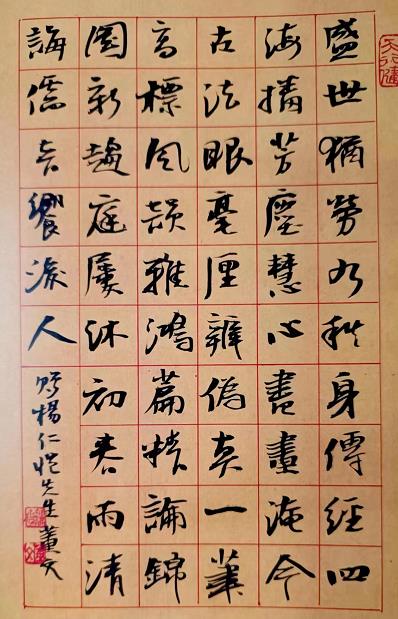 天行健
盛世猶勞九秩身傳經四
海播芳塵慧心書畫淹今
古法眼毫厘辨偽真一
高標風韻雅鴻篇精論錦
新趨庭屢沐初春雨清
誨儒音饗後人
贈楊仁愷先生董文